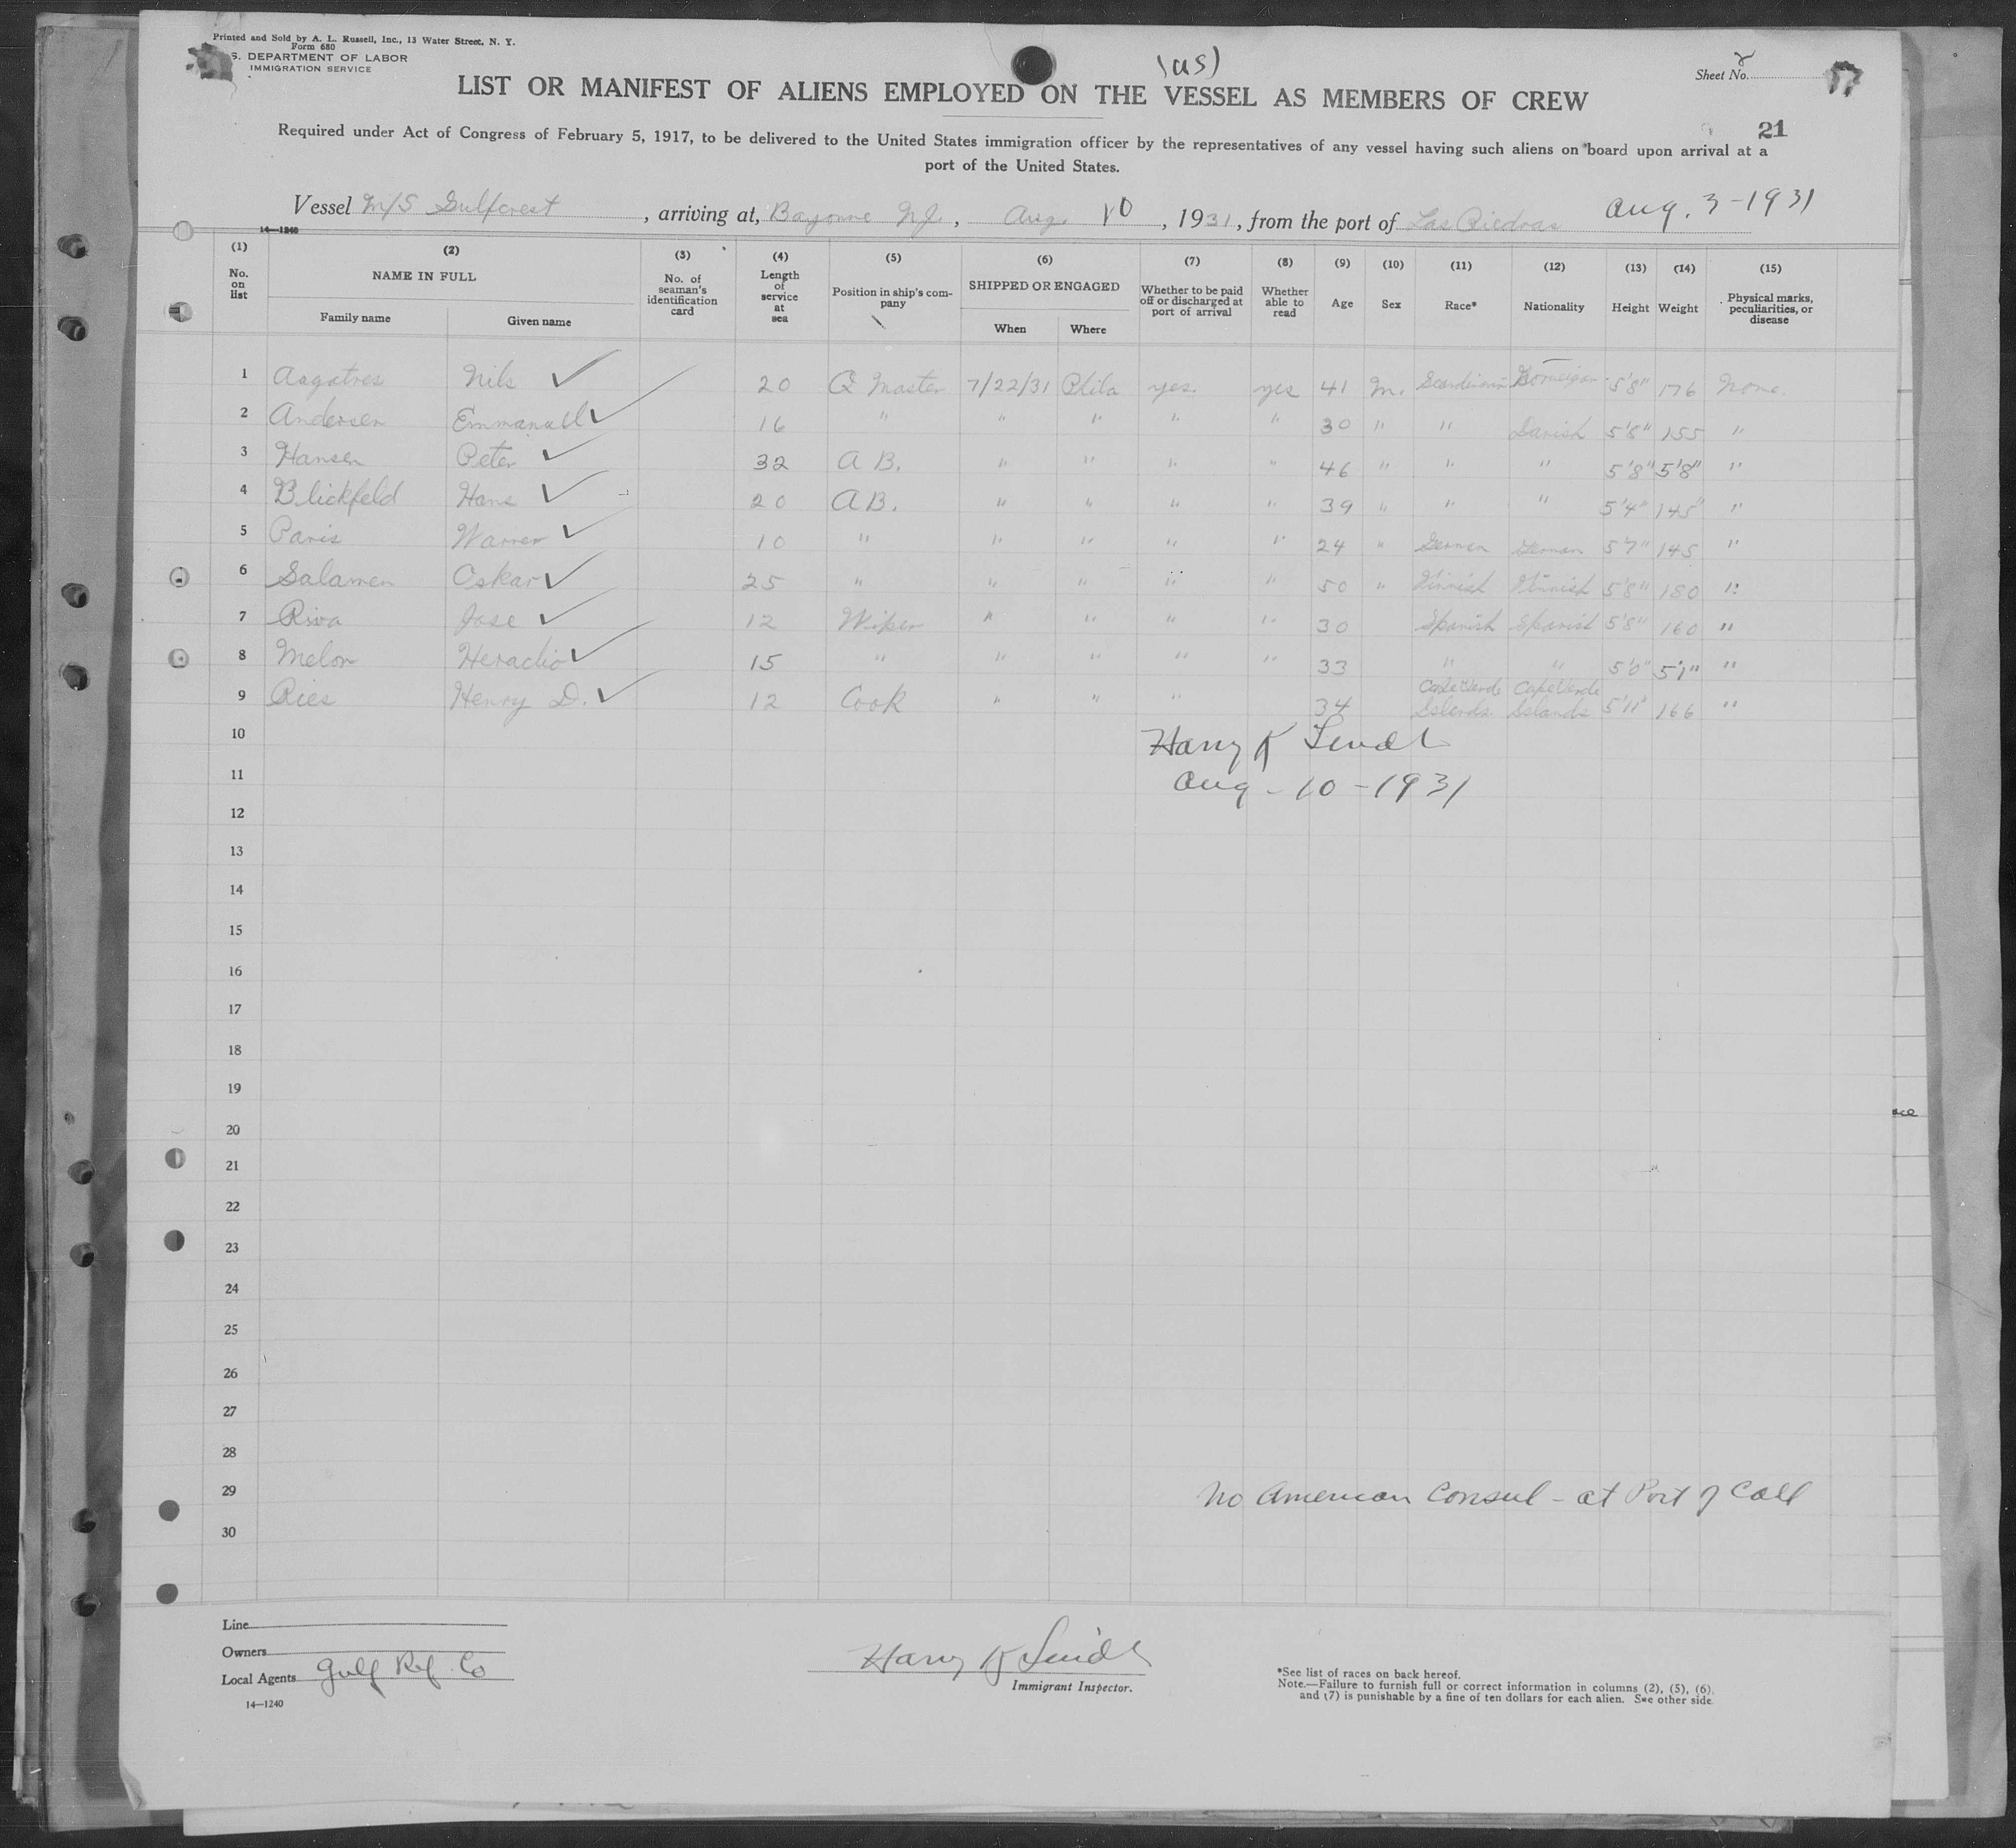 Printed and Sold by A. L. Russell, Inc., 13 Water Street, N. Y.
Form 680
S. DEPARTMENT OF LABOR
IMMIGRATION SERVICE
(us)
Sheet No. 2
LIST OR MANIFEST OF ALIENS EMPLOYED ON THE VESSEL AS MEMBERS OF CREW
21
Required under Act of Congress of February 5, 1917, to be delivered to the United States immigration officer by the representatives of any vessel having such aliens on board upon arrival at a
port of the United States.
Vessel M/S Gulfcrest, arriving at, Bayonne N.J., Aug. 10, 1931, from the port of Las Piedras Aug. 3-1931
14—1240
(1) (2) (3) (4) (5) (6) (7) (8) (9) (10) (11) (12) (13) (14) (15)
No. on list NAME IN FULL Family name Given name No. of seaman's identification card Length of service at sea Position in ship's company SHIPPED OR ENGAGED When Where Whether to be paid off or discharged at port of arrival Whether able to read Age Sex Race* Nationality Height Weight Physical marks, peculiarities, or disease
1 Nils ✓ 20 Q Master 7/22/31 Phila yes. yes 41 M. 5'8" 176 None.
2 Andersen Emmanuell ✓ 16 " " " " " 30 " " Danish 5'8" 155 "
3 Hansen Peter ✓ 32 A B. " " " " 46 " " " 5'8" 5'8" "
4 Blickfeld Hans ✓ 20 A B. " " " " 39 " " " 5'4" 145" "
5 Paris Warner ✓ 10 " " " " " 24 " German German 5'7" 145 "
6 Salamen Oskar ✓ 25 " " " " " 50 " Finnish Finnish 5'8" 180 "
7 Riva Jose ✓ 12 Wiper " " " " 30 Spanish Spanish 5'8" 160 "
8 Melon Heraclio ✓ 15 " " " " " 33 " " 5'0" 5'1" "
9 Ries Henry D. ✓ 12 Cook " " " 34 Cape Verde Islands Cape Verde Islands 5'11" 166 "
10 Harry K
11 Aug - 10 - 1931
12
13
14
15
16
17
18
19
20
21
22
23
24
25
26
27
28
29 No American Consul - at Port of Call
30
Line
Owners
Local Agents Gulf Ref. Co
14—1240
Harry K
Immigrant Inspector.
*See list of races on back hereof.
Note.—Failure to furnish full or correct information in columns (2), (5), (6),
and (7) is punishable by a fine of ten dollars for each alien. See other side